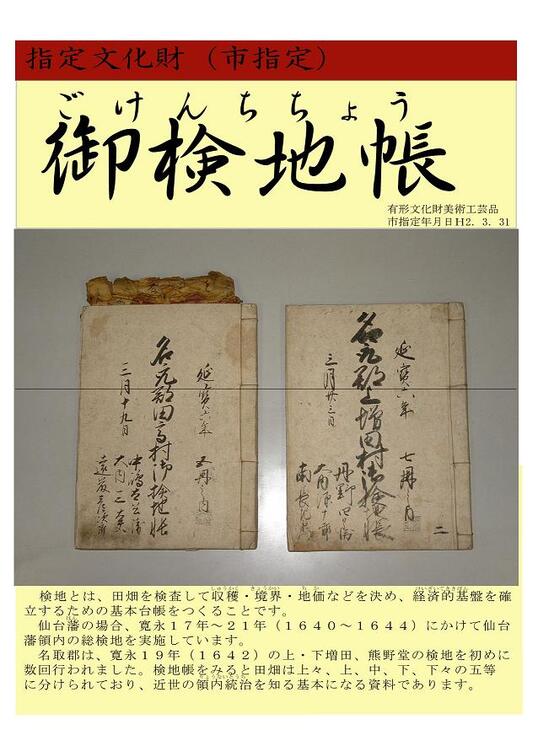 指定文化財（市指定）
ごけんちちょう
御検地帳
有形文化財美術工芸品
市指定年月日H2．3．31
延寳六年
名取郡田高村御検地帳
三月十九日
延寳六年 七冊之内
名取郡上増田村御検地帳
三月廿三日
二
検地とは、田畑を検査して収穫・境界・地価などを決め、経済的基盤を確
立するための基本台帳をつくることです。
仙台藩の場合、寛永１７年～２１年（１６４０～１６４４）にかけて仙台
藩領内の総検地を実施しています。
名取郡は、寛永１９年（１６４２）の上・下増田、熊野堂の検地を初めに
数回行われました。検地帳をみると田畑は上々、上、中、下、下々の五等
に分けられており、近世の領内統治を知る基本になる資料であります。